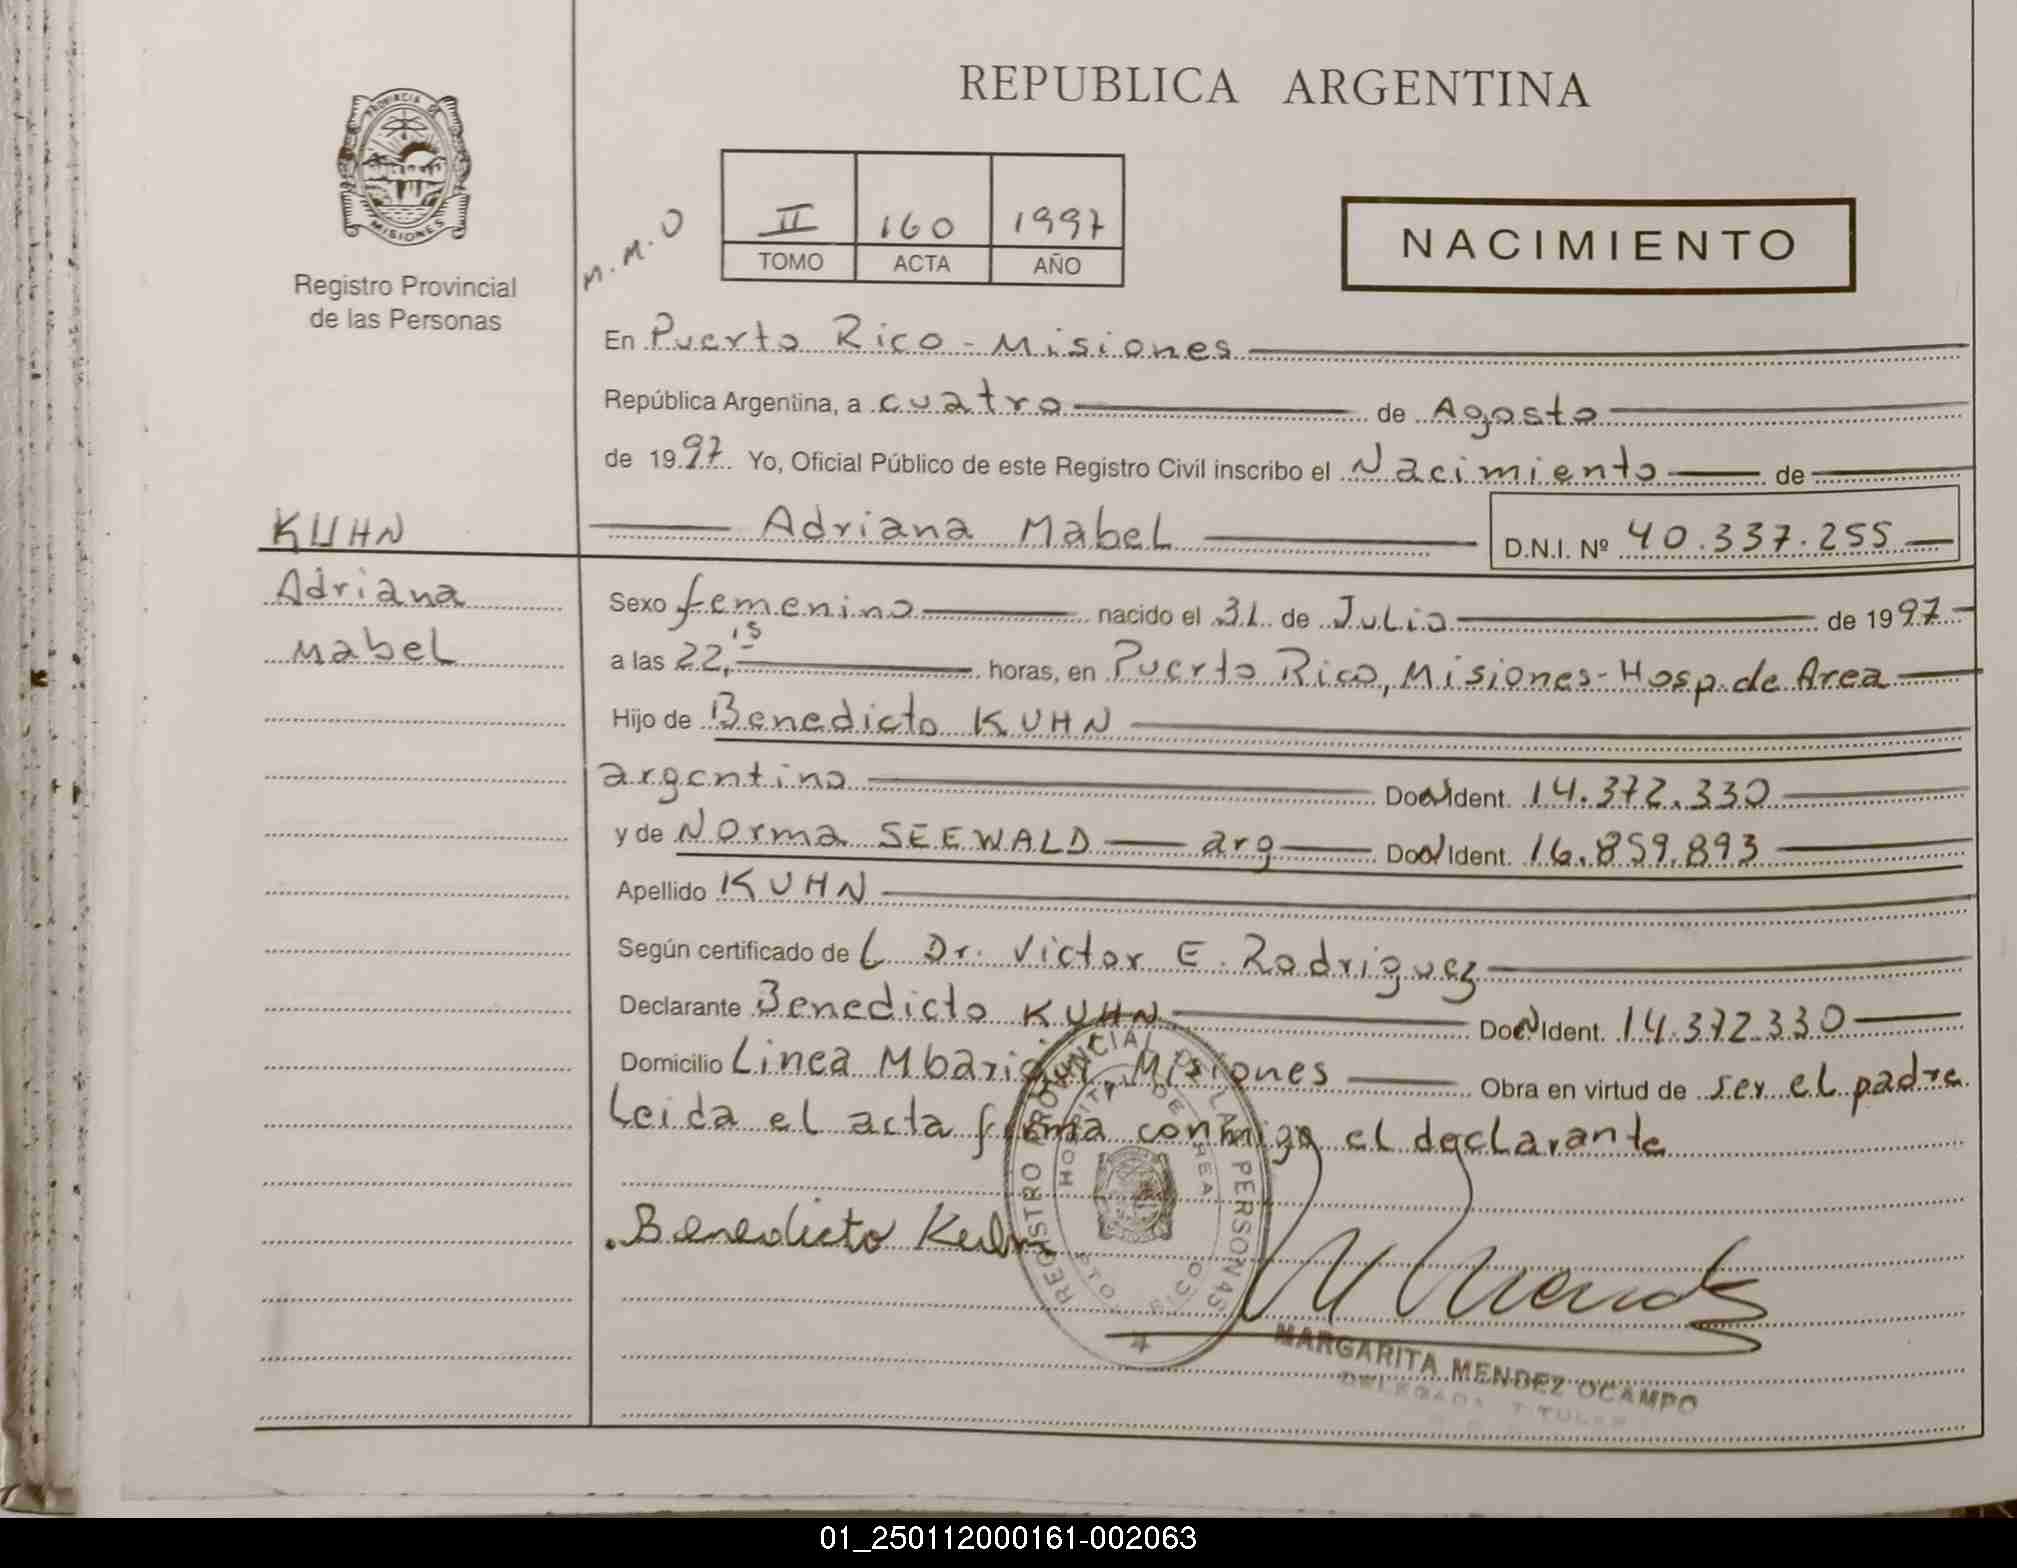 REPUBLICA ARGENTINA
PROVINCIA DE
MISIONES
Registro Provincial
de las Personas
M.M.O
II 160 1997
TOMO ACTA AÑO
NACIMIENTO
En Puerto Rico - Misiones
República Argentina, a cuatro de Agosto
de 1997 Yo, Oficial Público de este Registro Civil inscribo el Nacimiento de
Adriana Mabel D.N.I. Nº 40.337.255
KUHN
Adriana
Mabel
Sexo femenino nacido el 31 de Julio de 1997
a las 22,15 horas, en Puerto Rico, Misiones - Hosp. de Area
Hijo de Benedicto KUHN
argentino Ident. 14.372.330
y de Norma SEEWALD arg Ident. 16.859.893
Apellido KUHN
Según certificado de L Dr. Victor E. Rodriguez
Declarante Benedicto KUHN Ident. 14.372.330
Domicilio Linea Misiones Obra en virtud de ser el padre
Leida el acta firma conmigo el declarante
REGISTRO PROVINCIAL DE LAS PERSONAS
HOSPITAL DE AREA
PTO. RICO
Benedicto Kuhn
MARGARITA MENDEZ OCAMPO
DELEGADA TITULAR
01_250112000161-002063